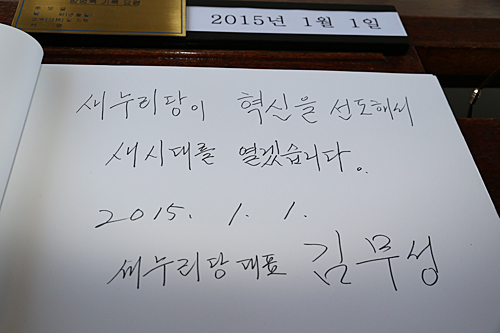 2015년 1월 1일
새누리당이 혁신을 선도해서
새시대를 열겠습니다.
2015. 1. 1.
새누리당대표 김무성